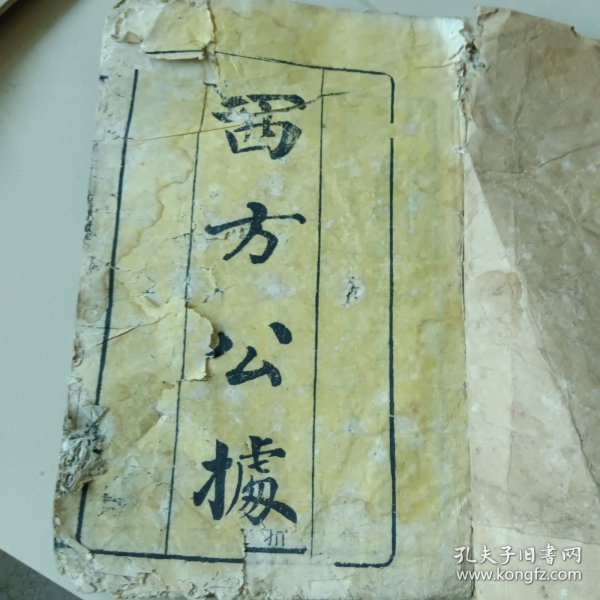 西方公據
孔夫子旧书网
www.kongfz.com